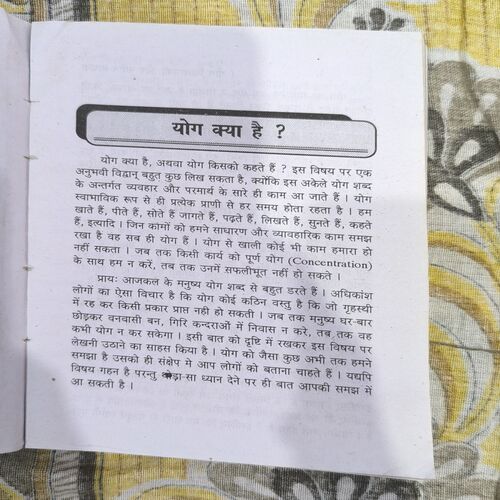 योग क्या है ?
योग क्या है, अथवा योग किसको कहते हैं ? इस विषय पर एक
अनुभवी विद्वान् बहुत कुछ लिख सकता है, क्योंकि इस अकेले योग शब्द
के अन्तर्गत व्यवहार और परमार्थ के सारे ही काम आ जाते हैं । योग
स्वाभाविक रूप से ही प्रत्येक प्राणी से हर समय होता रहता है । हम
खाते हैं, पीते हैं, सोते हैं जागते हैं, पढ़ते हैं, लिखते हैं, सुनते हैं, कहते
हैं, इत्यादि । जिन कामों को हमने साधारण और व्यावहारिक काम समझ
रखा है वह सब ही योग हैं । योग से खाली कोई भी काम हमारा हो
नहीं सकता । जब तक किसी कार्य को पूर्ण योग (Concentration)
के साथ हम न करें, तब तक उनमें सफलीभूत नहीं हो सकते ।
प्रायः आजकल के मनुष्य योग शब्द से बहुत डरते हैं । अधिकांश
लोगों का ऐसा विचार है कि योग कोई कठिन वस्तु है कि जो गृहस्थी
में रह कर किसी प्रकार प्राप्त नही हो सकती । जब तक मनुष्य घर-बार
छोड़कर वनवासी बन, गिरि कन्दराओं में निवास न करे, तब तक वह
कभी योग न कर सकेगा । इसी बात को दृष्टि में रखकर इस विषय पर
लेखनी उठाने का साहस किया है । योग को जैसा कुछ अभी तक हमने
समझा है उसको ही संक्षेप मे आप लोगों को बताना चाहते हैं । यद्यपि
विषय गहन है परन्तु ध्यान देने पर ही बात आपकी समझ में
आ सकती है ।